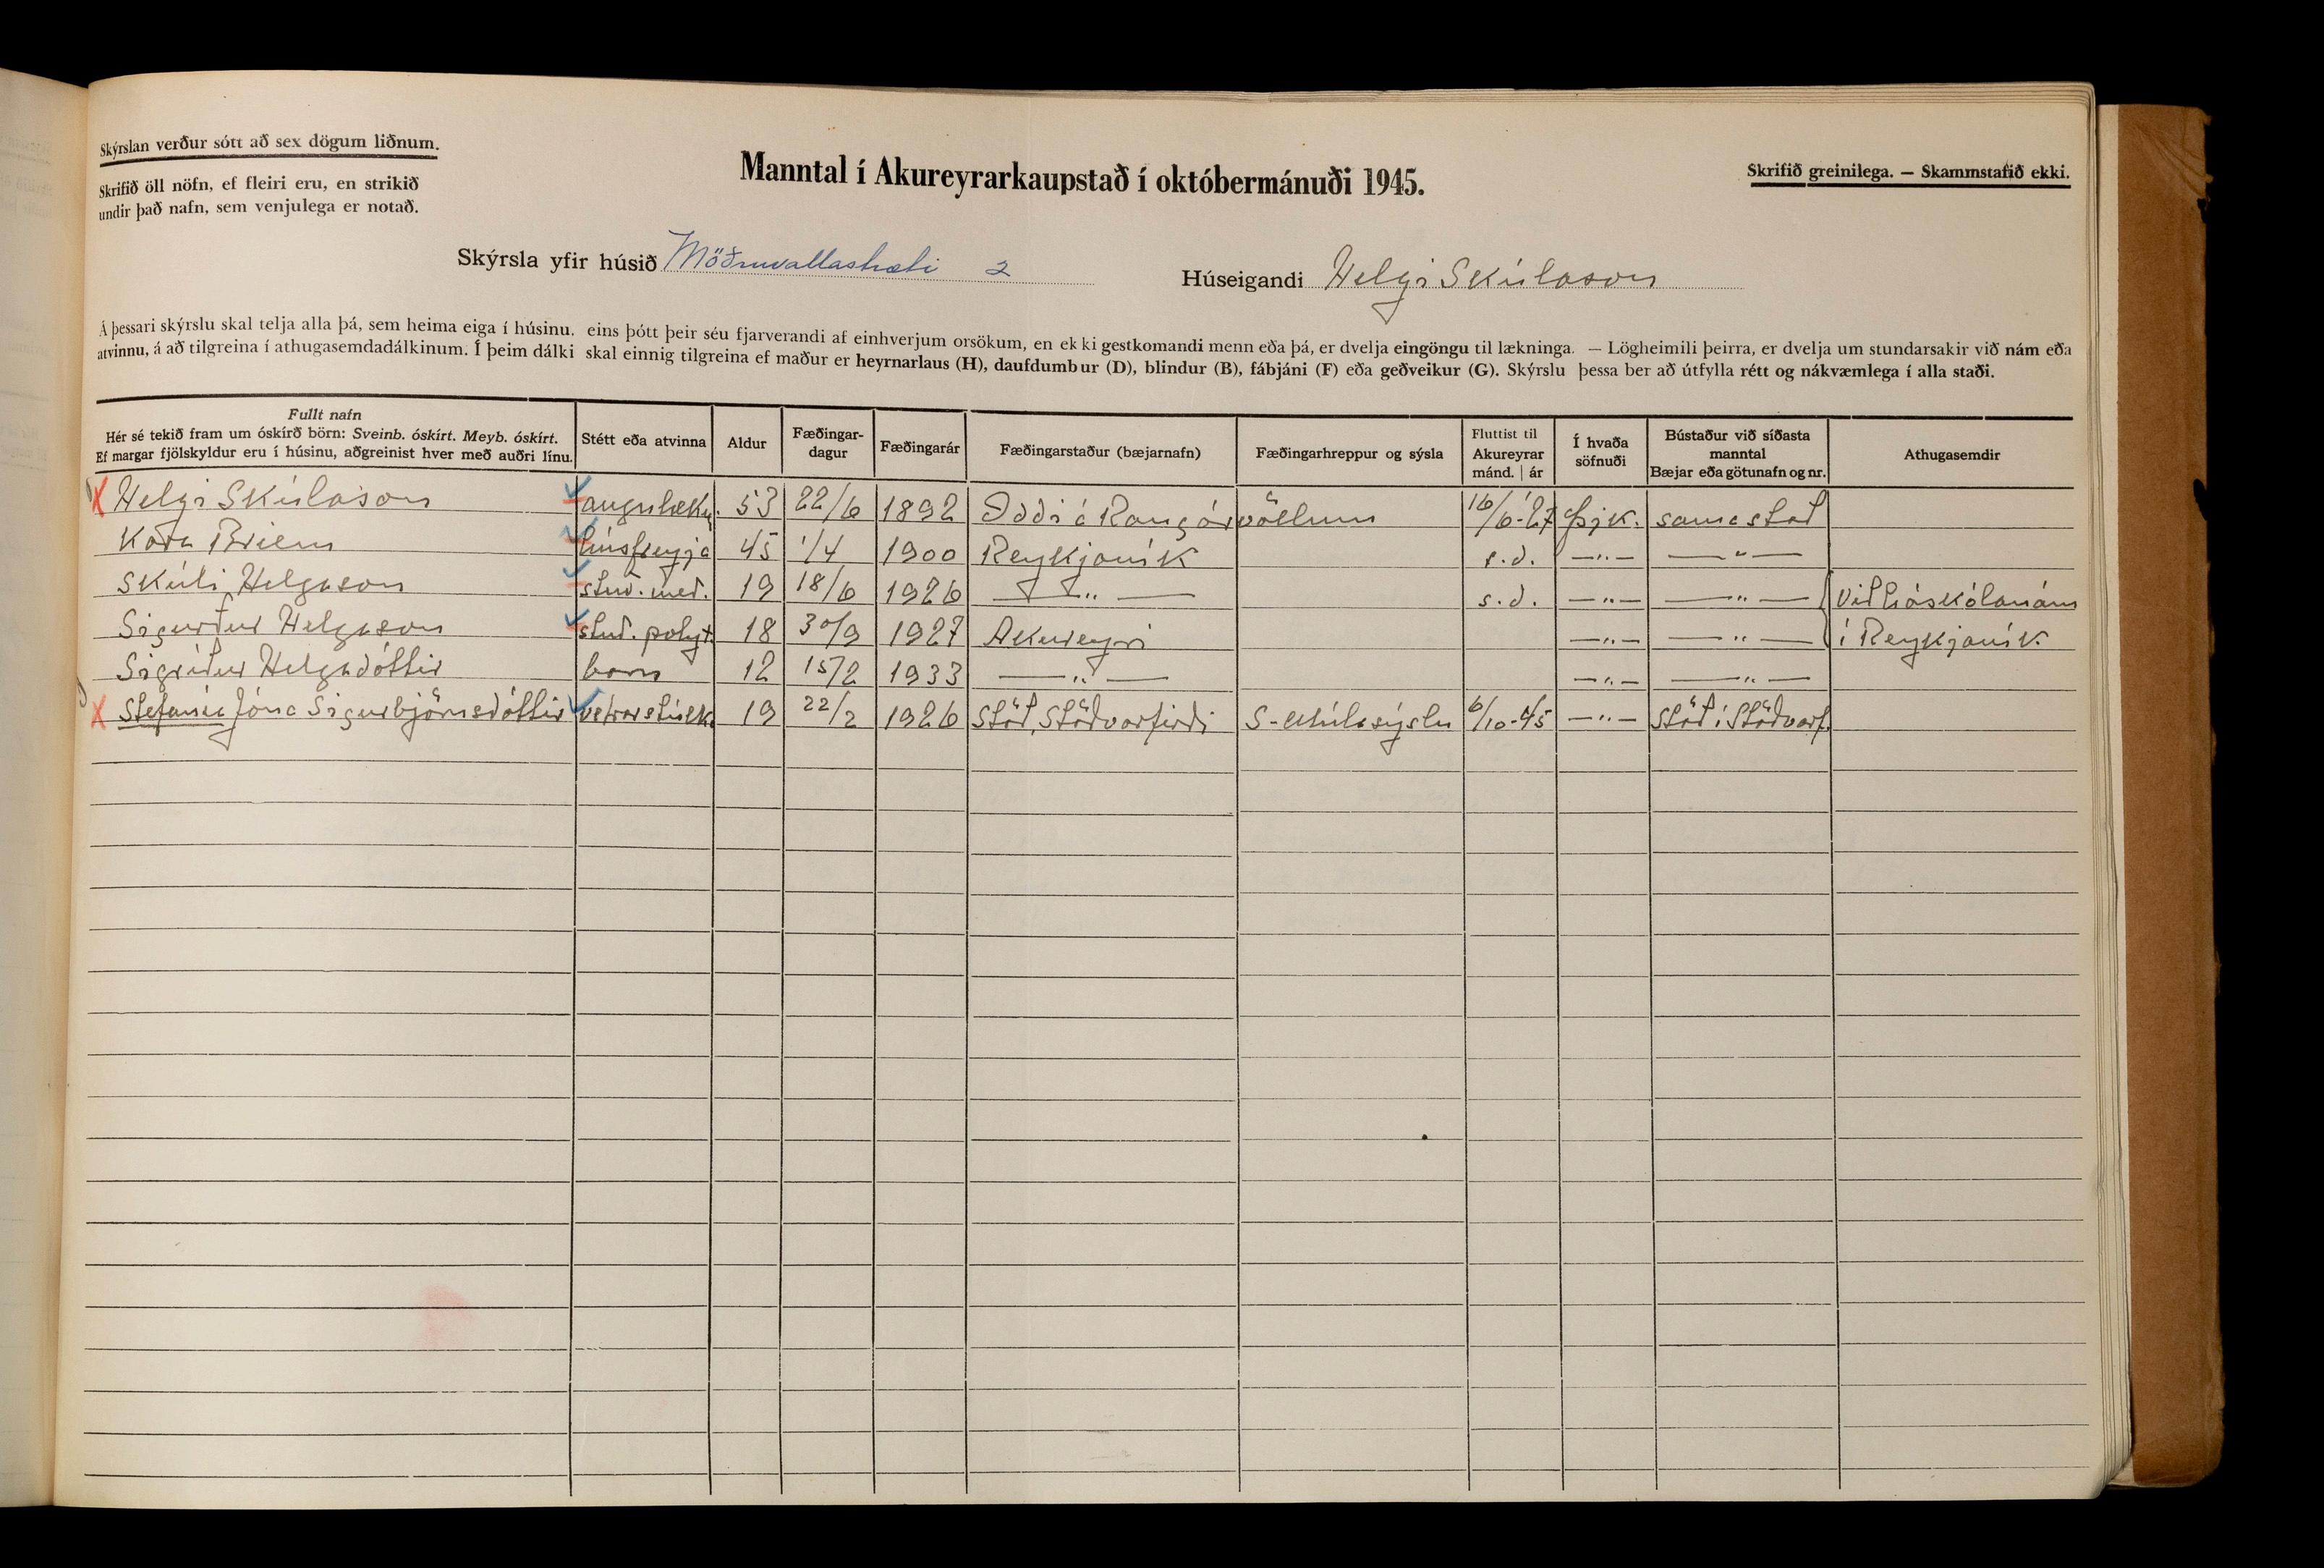 Skýrslan verður sótt að sex dögum liðnum.
Skrifið öll nöfn, ef fleiri eru, en strikið
undir það nafn, sem venjulega er notað.
Manntal í Akureyrarkaupstað í októbermánuði 1945.
Skrifið greinilega. — Skammstafið ekki.
Skýrsla yfir húsið Möðruvallastræti 2
Húseigandi Helgi Skúlason
Á þessari skýrslu skal telja alla þá, sem heima eiga í húsinu, eins þótt þeir séu fjarverandi af einhverjum orsökum, en ekki gestkomandi menn eða þá, er dvelja eingöngu til lækninga. — Lögheimili þeirra, er dvelja um stundarsakir við nám eða
atvinnu, á að tilgreina í athugasemdadálkinum. Í þeim dálki skal einnig tilgreina ef maður er heyrnarlaus (H), daufdumbur (D), blindur (B), fábjáni (F) eða geðveikur (G). Skýrslu þessa ber að útfylla rétt og nákvæmlega í alla staði.
Fullt nafn
Hér sé tekið fram um óskírð börn: Sveinb. óskírt. Meyb. óskírt.
Ef margar fjölskyldur eru í húsinu, aðgreinist hver með auðri línu.
Stétt eða atvinna
Aldur
Fæðingar-
dagur
Fæðingarár
Fæðingarstaður (bæjarnafn)
Fæðingarhreppur og sýsla
Fluttist til
Akureyrar
mánd. | ár
Í hvaða
söfnuði
Bústaður við síðasta
manntal
Bæjar eða götunafn og nr.
Athugasemdir
X Helgi Skúlason augnlækn. 53 22/6 1892 Oddi á Rangárvöllum 16/6-'27 þjk. sama stað
Kara Briem húsfreyja 45 1/4 1900 Reykjavík s.d. —"— —"—
Skúli Helgason stud. med. 19 18/6 1926 —"— s.d. —"— —"— við háskólanám
Sigurður Helgason stud. polyt. 18 30/9 1927 Akureyri —"— —"— í Reykjavík
Sigríður Helgadóttir barn 12 15/2 1933 —"— —"— —"—
X Stefanía Jóna Sigurbjörnsdóttir vetrarstúlk. 19 22/2 1926 Stöð, Stöðvarfirði S-Múlasýslu 6/10-45 —"— Stöð í Stöðvarf.